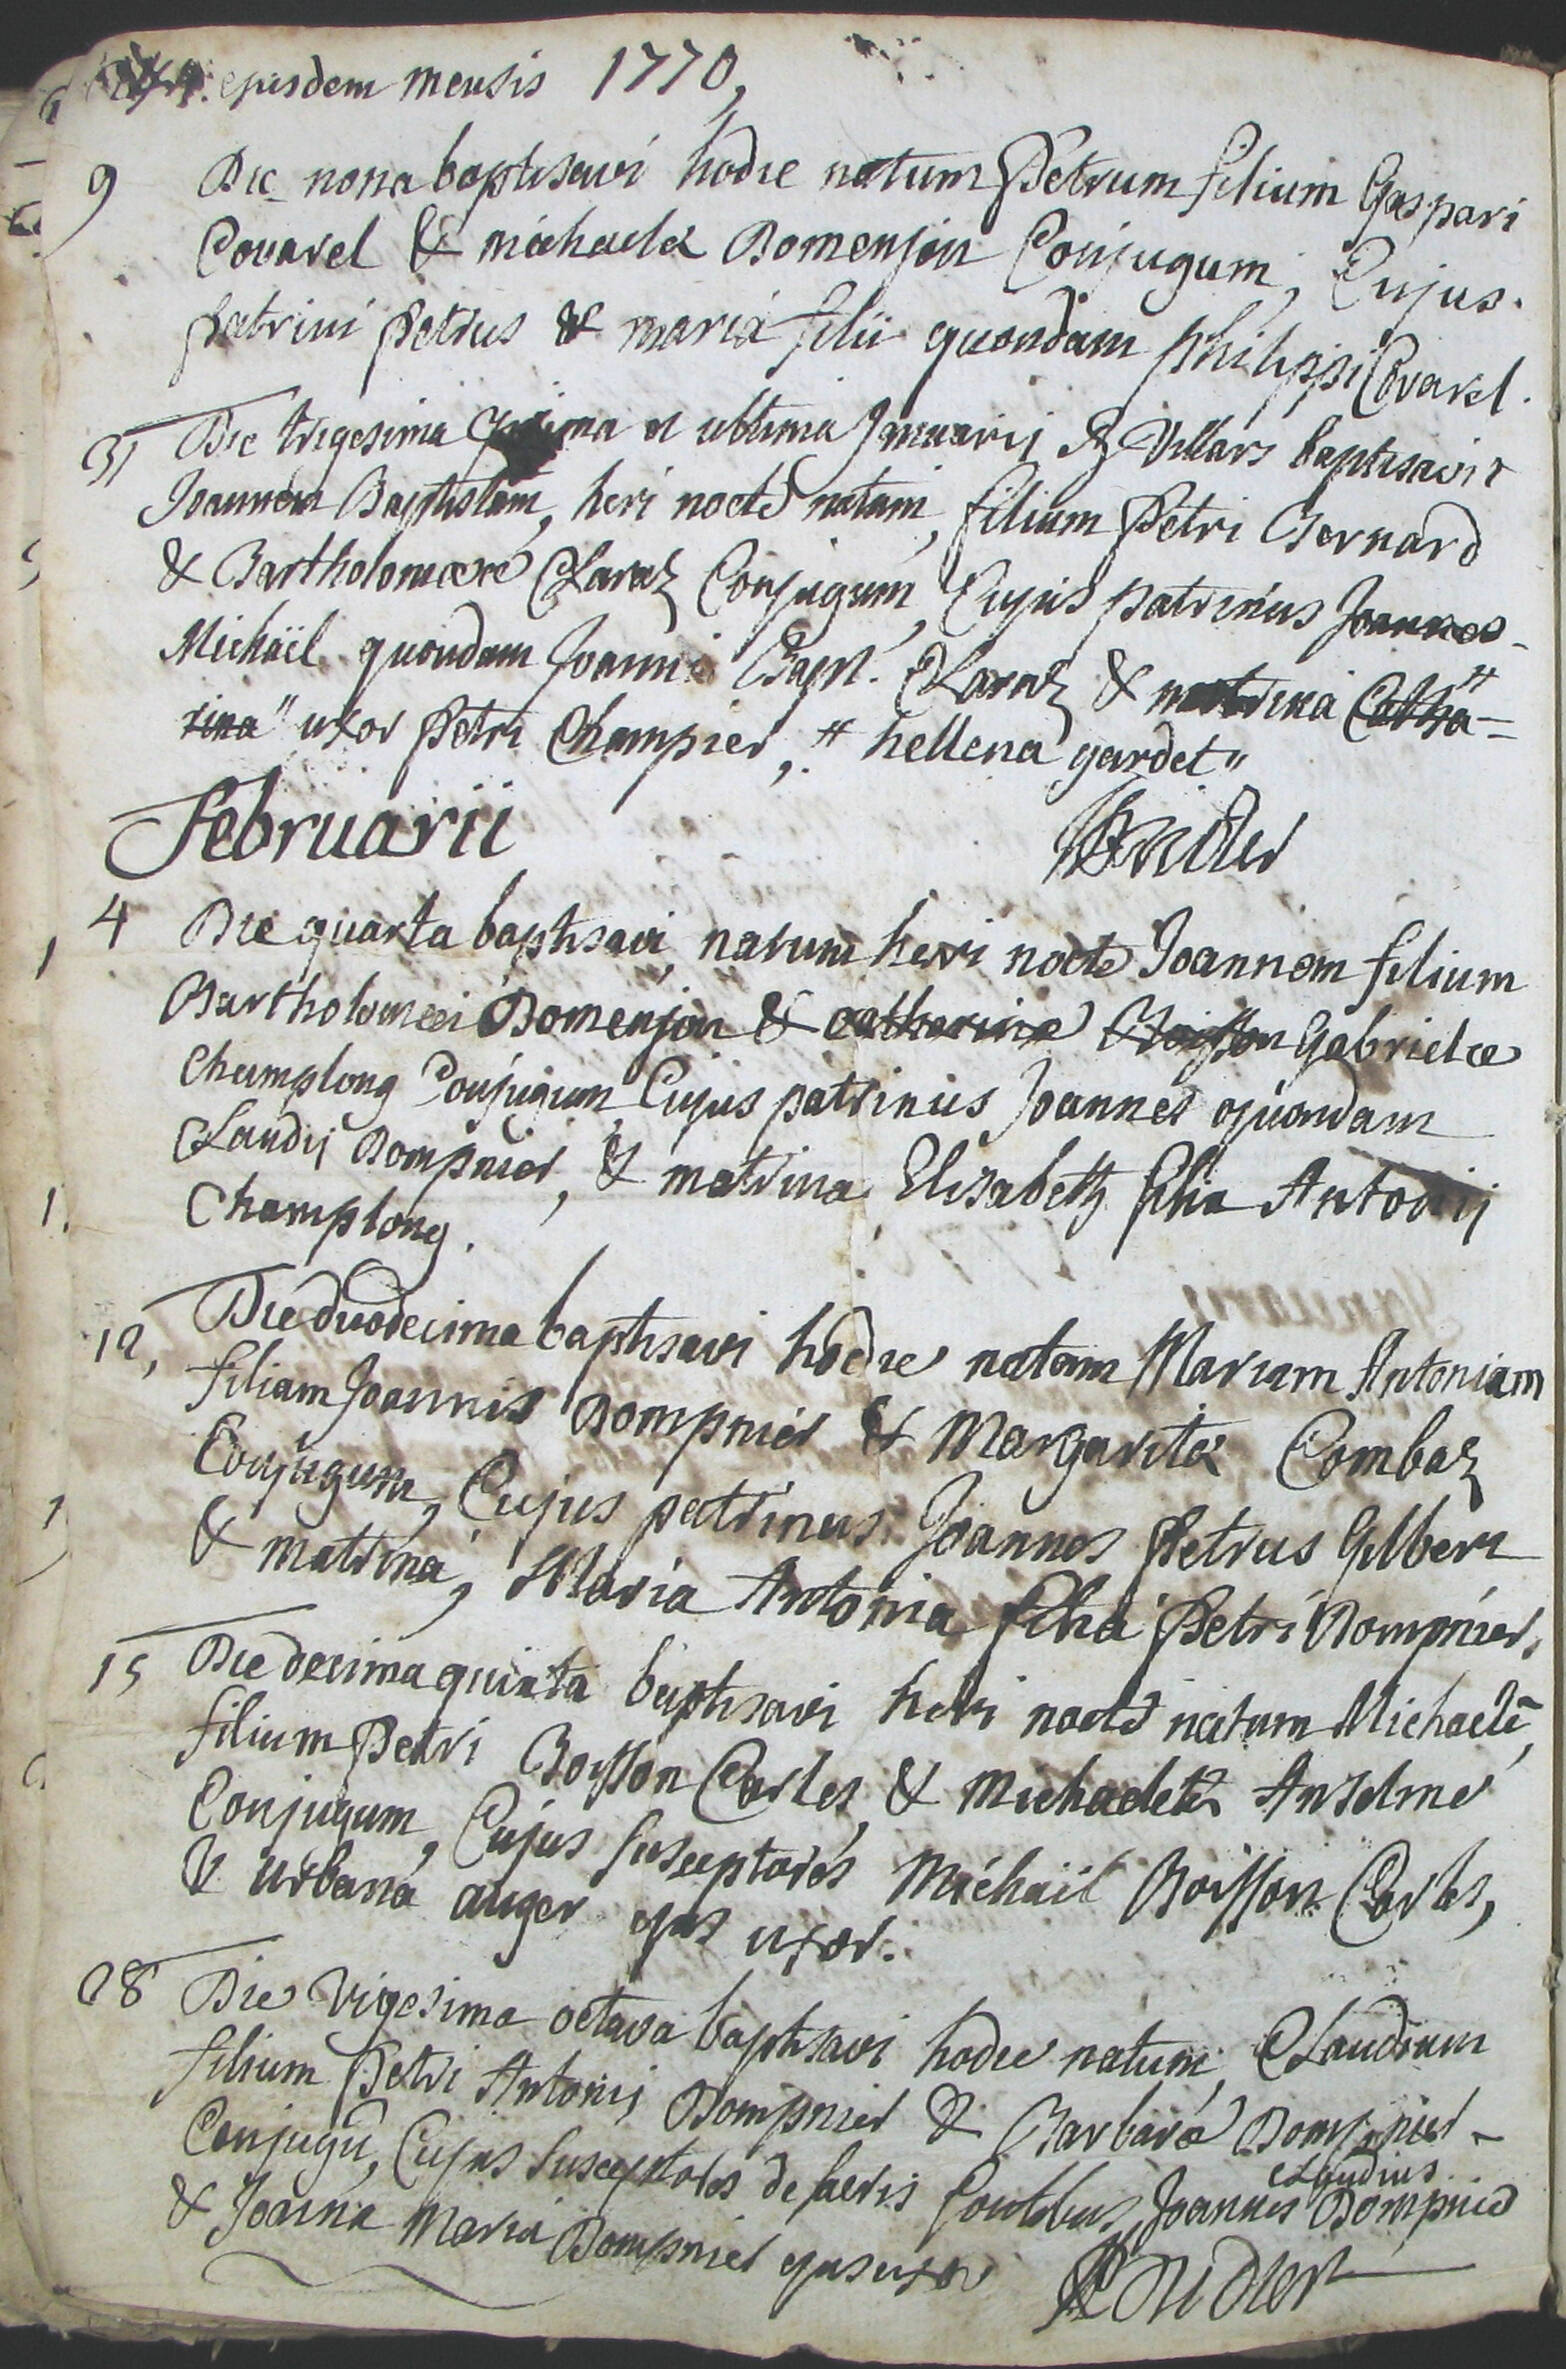 ejusdem mensis 1770,
9 Die nona baptisavi hodie natum Petrum filium Gaspari
Covarel & michaela Domenjon Conjugum, Cujus
patrini Petrus & maria filii quondam philippi Covarel.
31 Die trigesima prima et ultima Januarij R Villars baptisavit
Joannem Baptistam, heri nocte natum, filium Petri Bernard
& Bartholomaeae Claraz Conjugum, Cujus patrinus Joannes
Michaël quondam Joannis Bapt. Claraz & matrina Catha-
rina" uxor Petri Champier, # hellena gardet"
Februarii
4 Die quarta baptisavi natum heri nocte Joannem filium
Bartholomei Domenjon & catharina Boisson Gabrielae
Champlong Conjugum, Cujus patrinus Joannes quondam
Claudij Dompnier, & matrina Elisabeth filia Antonij
Champlong.
12, Die duodecima baptisavi hodie natam Mariam Antoniam
filiam Joannis Dompnier & Margarita Combaz
Conjugum, Cujus patrinus Joannes Petrus Gilbert
& matrina, Maria Antonia filia Petri Dompnier,
15 Die decima quinta baptisavi heri nocte natum Michaelē,
filium Petri Boisson Carles, & Michaeletae Anselme
Conjugum, Cujus susceptores Michaël Boisson Carles,
& Urbana auger ejus uxor.
28 Die Vigesima octava baptisavi hodie natum, Claudium
filium Petri Antonij Dompnier & Barbara Dompnier
Conjugū, Cujus susceptores de sacris fontibus, Joannes Claudius Dompnier
& Joanna Maria Dompnier ejus uxor